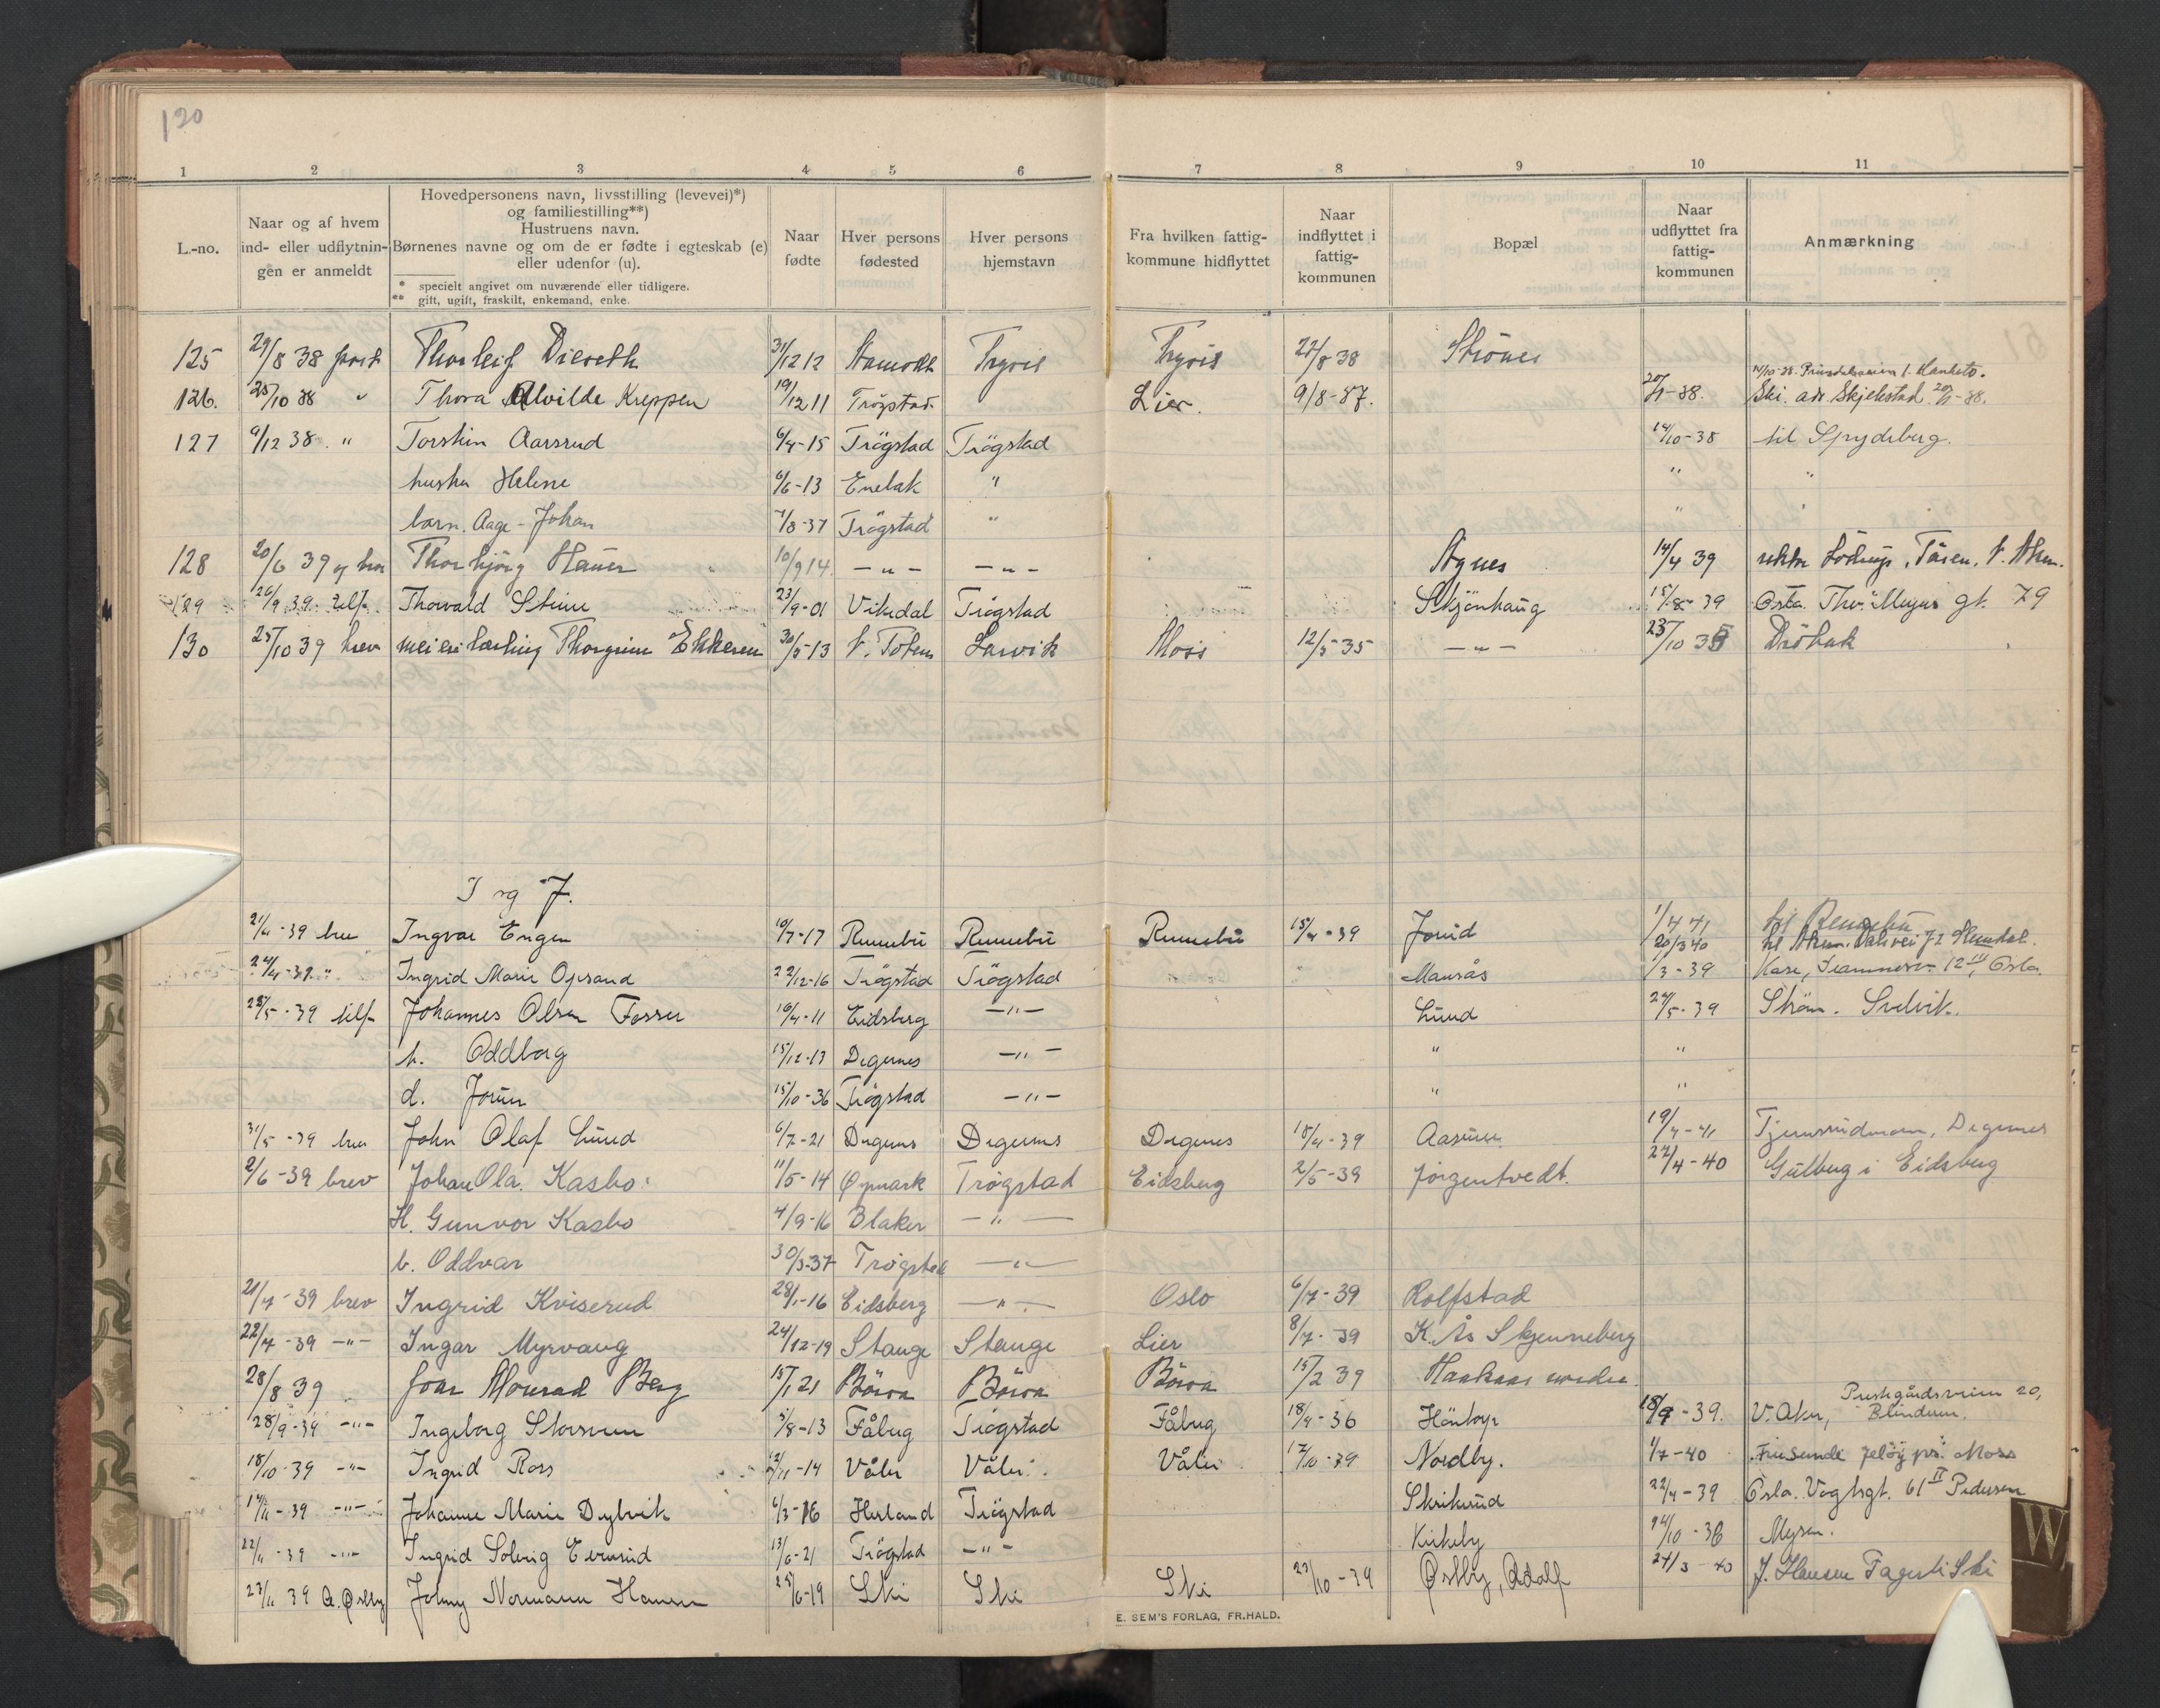 120
1 2 3 4 5 6 7 8 9 10 11
L.-no.
Naar og af hvem
ind- eller udflytnin-
gen er anmeldt
Hovedpersonens navn, livsstilling (levevei)*)
og familiestilling**)
Hustruens navn.
Børnenes navne og om de er fødte i egteskab (e)
eller udenfor (u).
* specielt angivet om nuværende eller tidligere.
** gift, ugift, fraskilt, enkemand, enke.
Naar
fødte
Hver persons
fødested
Hver persons
hjemstavn
Fra hvilken fattig-
kommune hidflyttet
Naar
indflyttet i
fattig-
kommunen
Bopæl
Naar
udflyttet fra
fattig-
kommunen
Anmærkning
125 29/8 38 post Thorleif 31/12 12 22/8 38
126. 25/10 38 " Thora Alvilde Kreppen 19/12 11 Trögstad Lier. 9/8-37. 20/9-38. Ski. adr. Skjelstad
127 9/12 38. " Torstein Aarsrud 6/4-15 Trögstad Trögstad 14/10-38 til Spydeberg.
hustru Helene 6/6-13 Enebak " " "
barn. Aage-Johan 7/8-37 Trögstad " "
128 20/6 39 Thorbjörg Hauer 10/9 14. -"- -"- Agnes 14/4 39
129 26/9 39. telf. Thorvald Steine 23/9-01 Vikedal Trögstad Skjönhaug 15/8-39 Oslo. Thv. Meyers gt. 79
130 25/10 39 brev Thorgrim 30/5-13 V. Toten Larvik Moss 12/5-35 -"- 23/10 39 Dröbak
I og J.
21/4-39 brev Ingvar Engen 10/7-17 Rennebu Rennebu Rennebu 15/4-39 Jorud 1/4 41 til Rennebu
20/3 40
24/4-39 " Ingrid Marie Opsand 22/12-16 Trögstad Trögstad Mansås 1/3-39 Oslo.
28/5-39 telf Johannes Olsen Fosser 16/4-11 Eidsberg -"- Lund 24/5-39 Ström. Svelvik.
h. Oddborg 15/12-13 Degernes -"- " "
d. Jorun 15/10-36 Trögstad -"- " "
31/5-39 brev John Olaf Lund 6/7-21 Degernes Degernes Degernes 18/4-39 19/4-41 Degernes
2/6-39 brev Johan Ola. Kasbo 11/5-14 Øymark Trøgstad Eidsberg 2/5-39 Jörgentvedt. 22/4-40 Gulberg i Eidsberg
H. Gunvor Kasbo 4/9-16 Blaker -"-
b. Oddvar 30/3-37 Trøgstad -"-
21/7-39 brev Ingrid Kviserud 28/1-16 Eidsberg -"- Oslo 6/7-39 Rolfstad
22/7-39 -"- Ingar Myrvang 24/12-19 Stange Stange Lier 8/7-39 K. Ås Skjenneberg
28/8 39 Joar Monrad Berg 15/1 21 Börsa Börsa Börsa 15/2 39
28/9-39 -"- Ingeborg 3/8-13 Fåbrg Trögstad Fåbrg 18/4-36 Höntorp 18/9-39. V. Aker, Prestgårdsveien 20, Blindern.
18/10-39 -"- Ingrid Ross 12/11-14 Våler Våler. Våler 17/10-39 Nordby. 1/7-40 Jelöy pr. Moss
14/11-39 -"- Johanne Marie Dylvik 6/3-16 Herland Trögstad Skrikerud 22/4-39 Oslo. Vogtsgt. 61 II Pedersen
22/11-39 -"- Ingrid Solveig 13/6-21 Trögstad -"- Kirkeby 24/10-38 Mysen.
27/11 39 A. Østby Johny Normann Hansen 25/6-19 Ski Ski Ski 23/10-39 Østby, Adolf 24/3-40 J. Hansen Fagerli Ski
E. SEM'S FORLAG, FR.HALD.
W